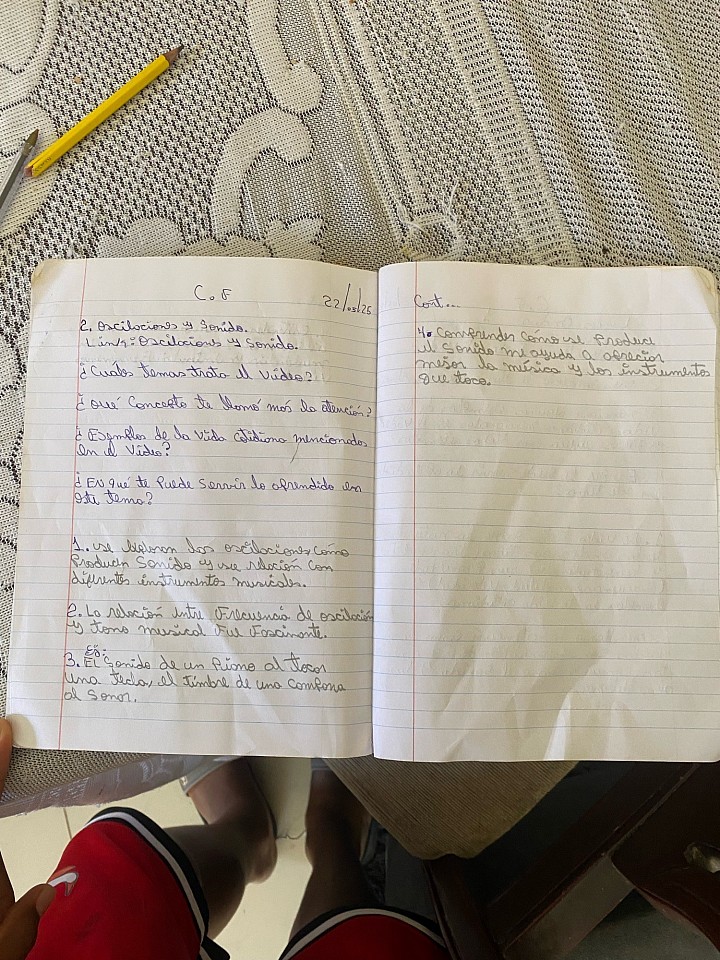 C. 8
22/05/25
2. Oscilaciones y Sonido.
Link: Oscilaciones y Sonido.
¿Cuáles temas trata el Video?
¿Qué Concepto te llamó más la atención?
¿Ejemplos de la Vida cotidiana mencionados
en el Video?
¿En qué te Puede Servir lo aprendido en
este tema?
1. se exploran las oscilaciones, cómo
Producen Sonido y su relación con
diferentes instrumentos musicales.
2. La relación entre Frecuencia de oscilación
y tono musical Fue Fascinante.
Ej:
3. El Sonido de un Piano al tocar
una tecla, el timbre de una campana
al Sonar.
Cont...
4. Comprender Cómo se Produce
el Sonido me ayuda a apreciar
mejor la música y los instrumentos
que toco.